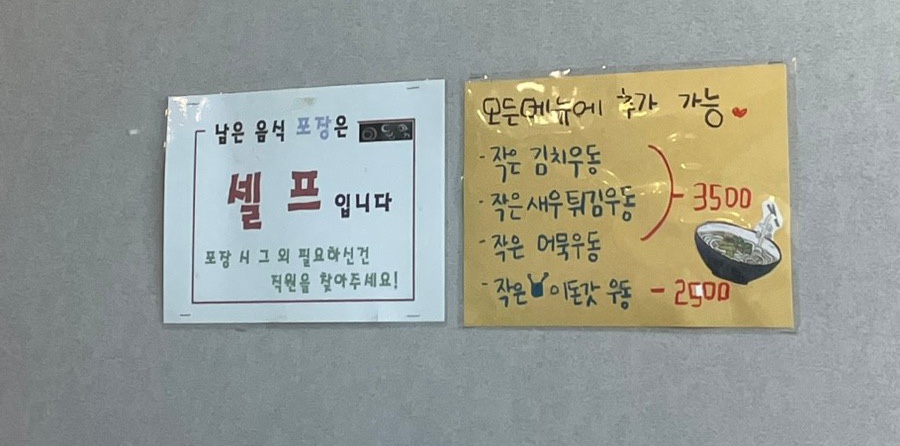 남은 음식 포장은
셀프 입니다
포장 시 그 외 필요하신건
직원을 찾아주세요!
모든메뉴에 추가 가능
· 작은 김치우동
· 작은새우튀김우동
· 작은 어묵우동
3500
· 작은 이돈갓 우동 - 2500